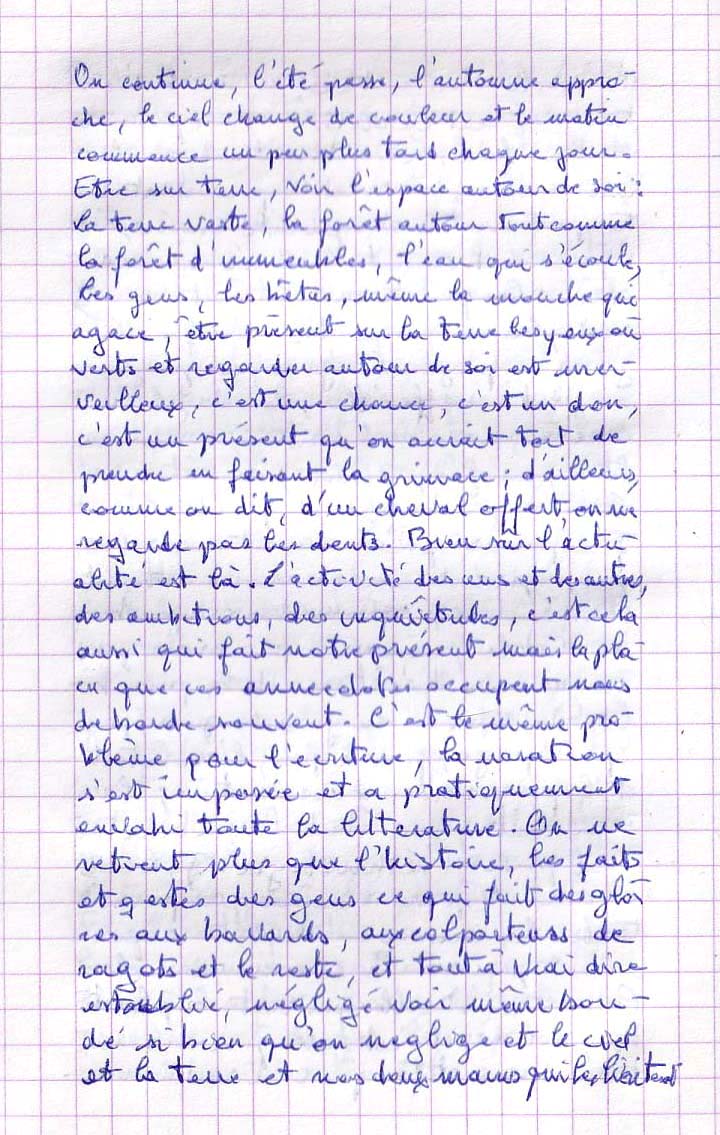 On continue, l'été passe, l'automne appro-
che, le ciel change de couleur et le matin
commence un peu plus tard chaque jour.
Etre sur terre, voir l'espace autour de soi :
la terre vaste, la forêt autour tout comme
la forêt d'immeubles, l'eau qui s'écoule,
les gens, les bêtes, même la mouche qui
agace, être présent sur la terre les yeux ou
verts et regarder autour de soi est mer-
veilleux, c'est une chance, c'est un don,
c'est un présent qu'on aurait tort de
prendre en faisant la grimace ; d'ailleurs,
comme on dit, d'un cheval offert, on ne
regarde pas les dents. Bien sûr l'actu-
alité est là. L'activité des uns et des autres,
des ambitions, des inquiétudes, c'est cela
aussi qui fait notre présent mais la pla-
ce que ces annecdotes occupent nous
déborde souvent. C'est le même pro-
blème pour l'écriture, la naration
s'est imposée et a pratiquement
envahi toute la littérature. On ne
retient plus que l'histoire, les faits
et gestes des gens ce qui fait des gloi
res aux bavards, aux colporteurs de
ragots et le reste, et tout à vrai dire
est oublié, négligé voir même
dé si bien qu'on néglige et le ciel
et la terre et nos deux mains qui les